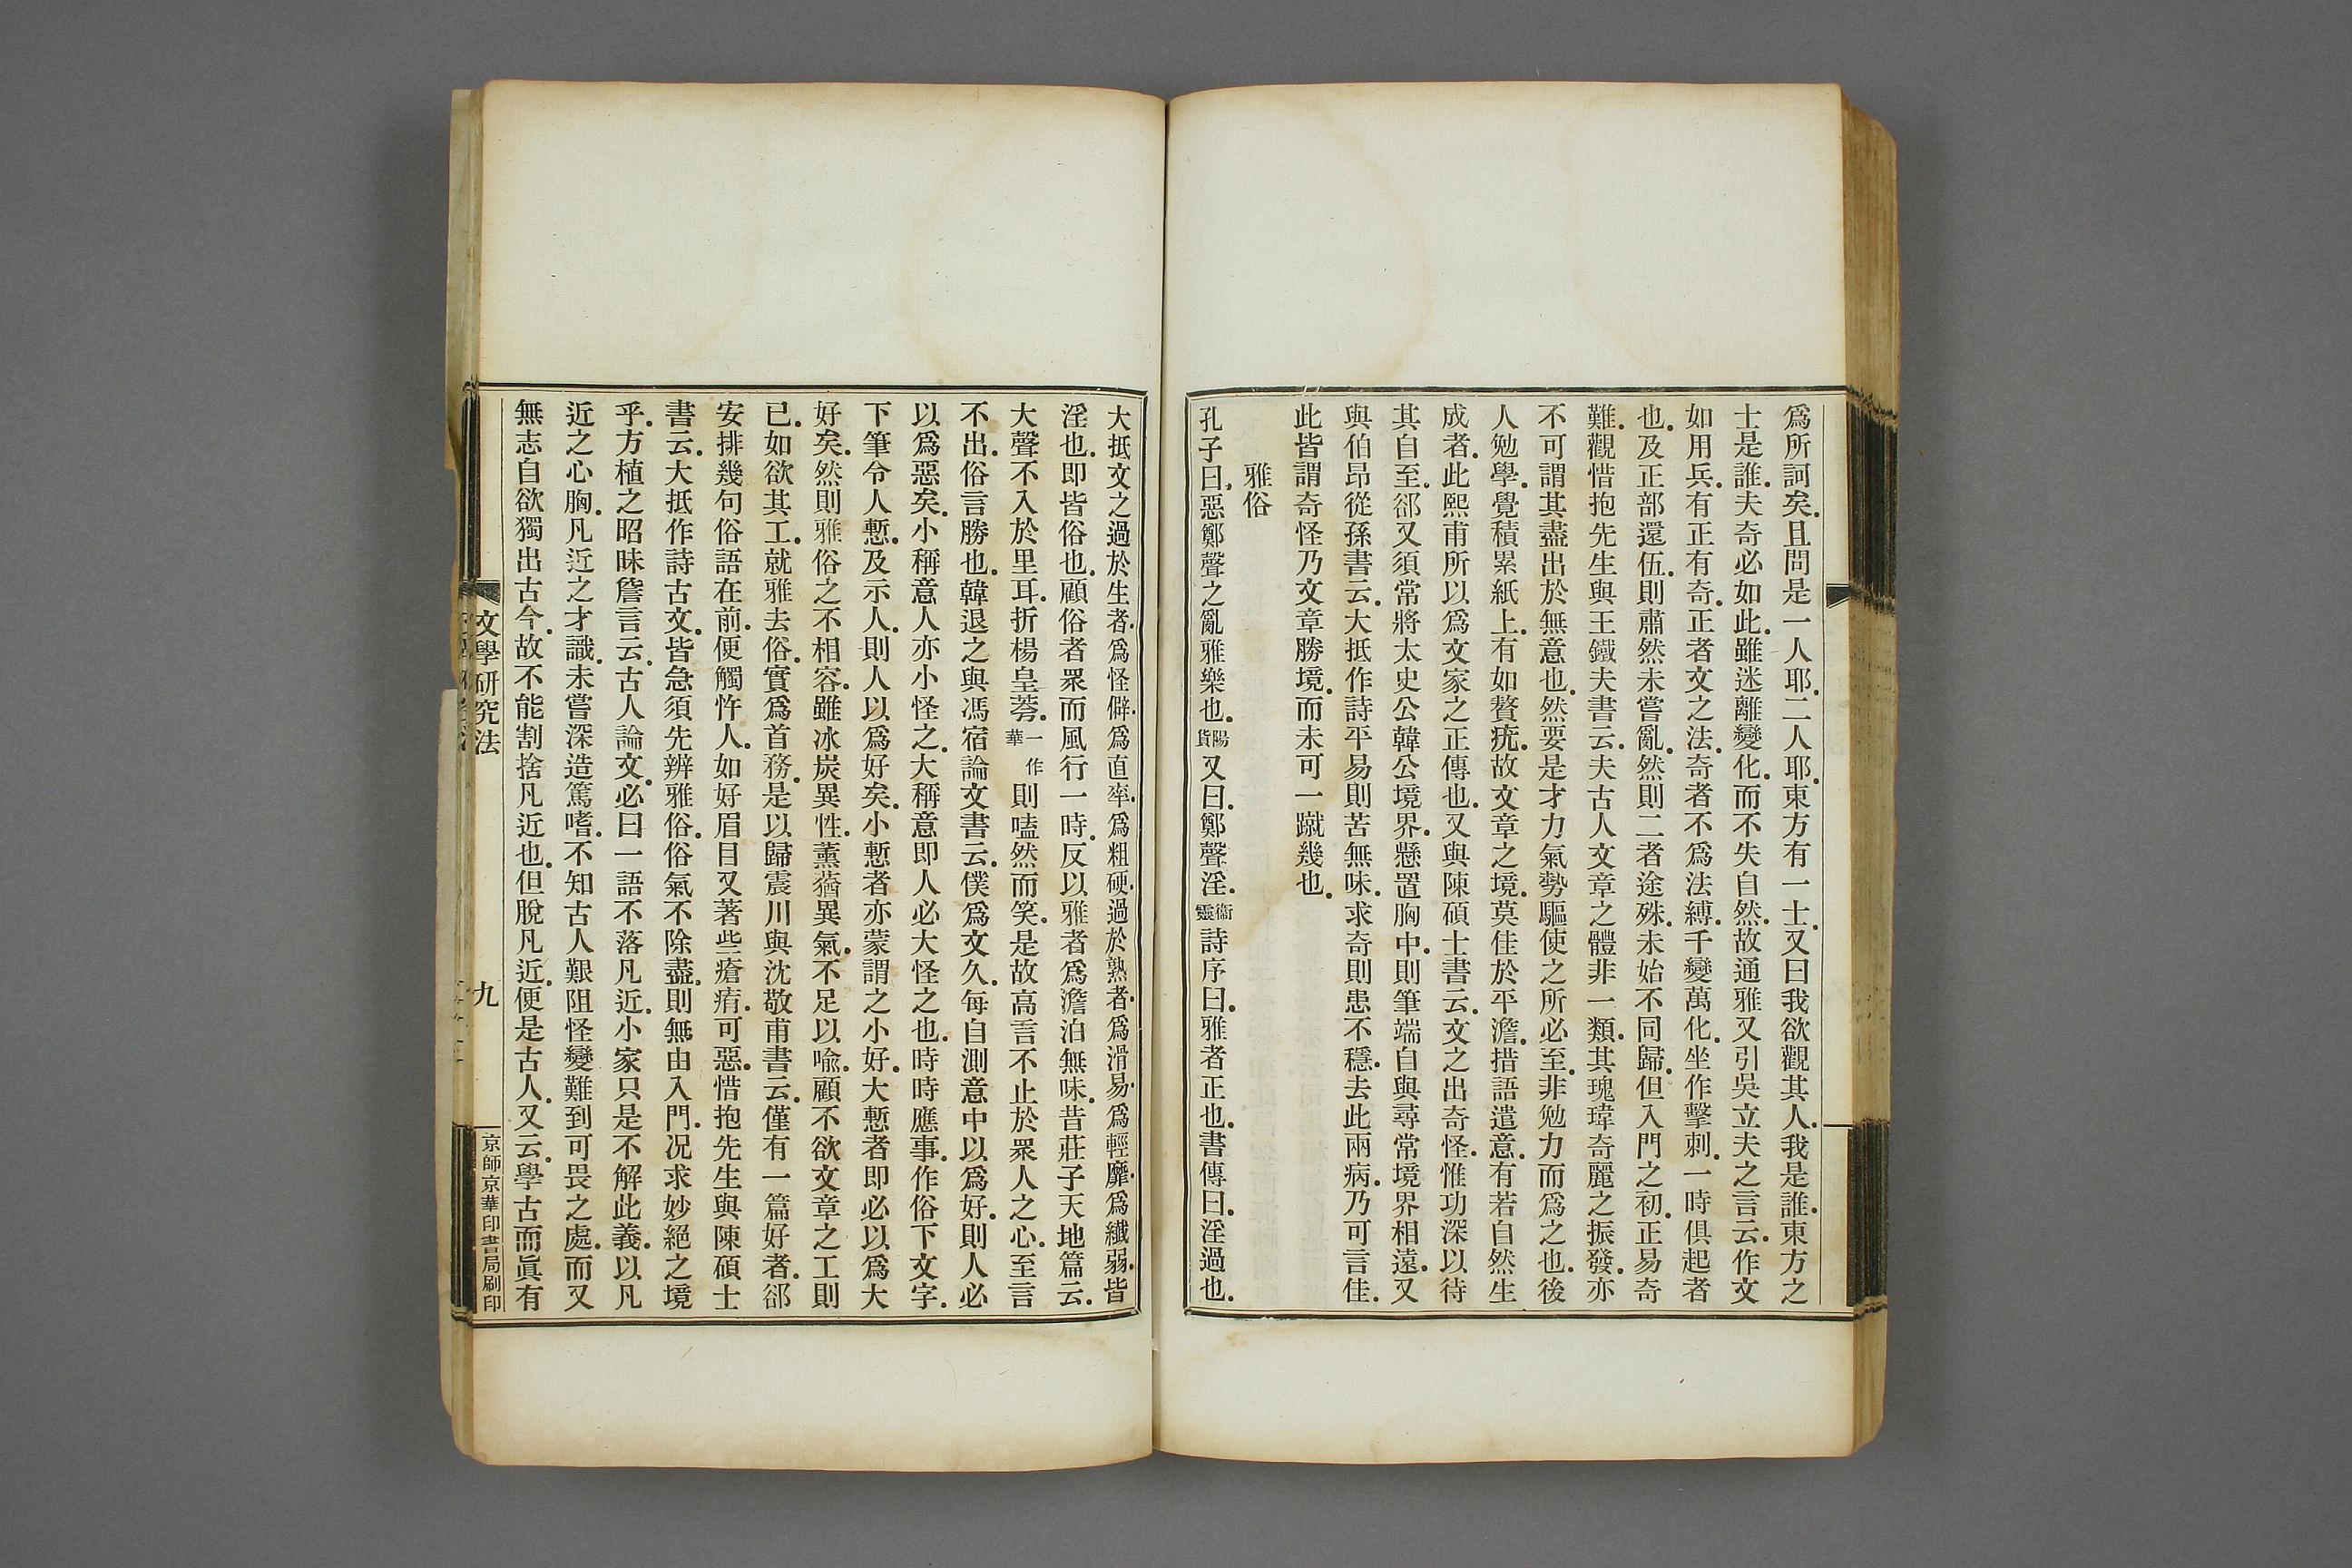 爲所訶矣。且問是一人耶。二人耶。東方有一士。又曰我欲觀其人。我是誰。東方之
士是誰。夫奇必如此。雖迷離變化。而不失自然。故通雅又引吳立夫之言云。作文
如用兵。有正有奇。正者文之法。奇者不爲法縛。千變萬化。坐作擊刺。一時俱起者
也。及正部還伍。則肅然未嘗亂。然則二者途殊。未始不同歸。但入門之初。正易奇
難。觀惜抱先生與王鐵夫書云。夫古人文章之體非一類。其瑰瑋奇麗之振發。亦
不可謂其盡出於無意也。然要是才力氣勢驅使之所必至。非勉力而爲之也。後
人勉學。覺積累紙上。有如贅疣。故文章之境。莫佳於平澹。措語遣意。有若自然生
成者。此熙甫所以爲文家之正傳也。又與陳碩士書云。文之出奇怪。惟功深以待
其自至。郤又須常將太史公韓公境界。懸置胸中。則筆端自與尋常境界相遠。又
與伯昂從孫書云。大抵作詩平易則苦無味。求奇則患不穩。去此兩病。乃可言佳。
此皆謂奇怪乃文章勝境。而未可一蹴幾也。
雅俗
孔子曰。惡鄭聲之亂雅樂也。陽貨又曰。鄭聲淫。衞靈詩序曰。雅者正也。書傳曰。淫過也。
大抵文之過於生者。爲怪僻。爲直率。爲粗硬。過於熟者。爲滑易。爲輕靡。爲纖弱。皆
淫也。即皆俗也。顧俗者眾而風行一時。反以雅者爲澹泊無味。昔莊子天地篇云。
大聲不入於里耳。折楊皇荂。一作華則嗑然而笑。是故高言不止於眾人之心。至言
不出。俗言勝也。韓退之與馮宿論文書云。僕爲文久。每自測意中以爲好。則人必
以爲惡矣。小稱意人亦小怪之。大稱意即人必大怪之也。時時應事。作俗下文字。
下筆令人慙。及示人。則人以爲好矣。小慙者亦蒙謂之小好。大慙者即必以爲大
好矣。然則雅俗之不相容。雖冰炭異性。薰蕕異氣。不足以喩。顧不欲文章之工則
已。如欲其工。就雅去俗。實爲首務。是以歸震川與沈敬甫書云。僅有一篇好者。郤
安排幾句俗語在前。便觸忤人。如好眉目又著些瘡痏。可惡。惜抱先生與陳碩士
書云。大抵作詩古文。皆急須先辨雅俗。俗氣不除盡。則無由入門。况求妙絕之境
乎。方植之昭昧詹言云。古人論文。必曰一語不落凡近。小家只是不解此義。以凡
近之心胸。凡近之才識。未嘗深造篤嗜。不知古人艱阻怪變難到可畏之處。而又
無志自欲獨出古今。故不能割捨凡近也。但脫凡近。便是古人。又云。學古而眞有
文學研究法
九
京師京華印書局刷印